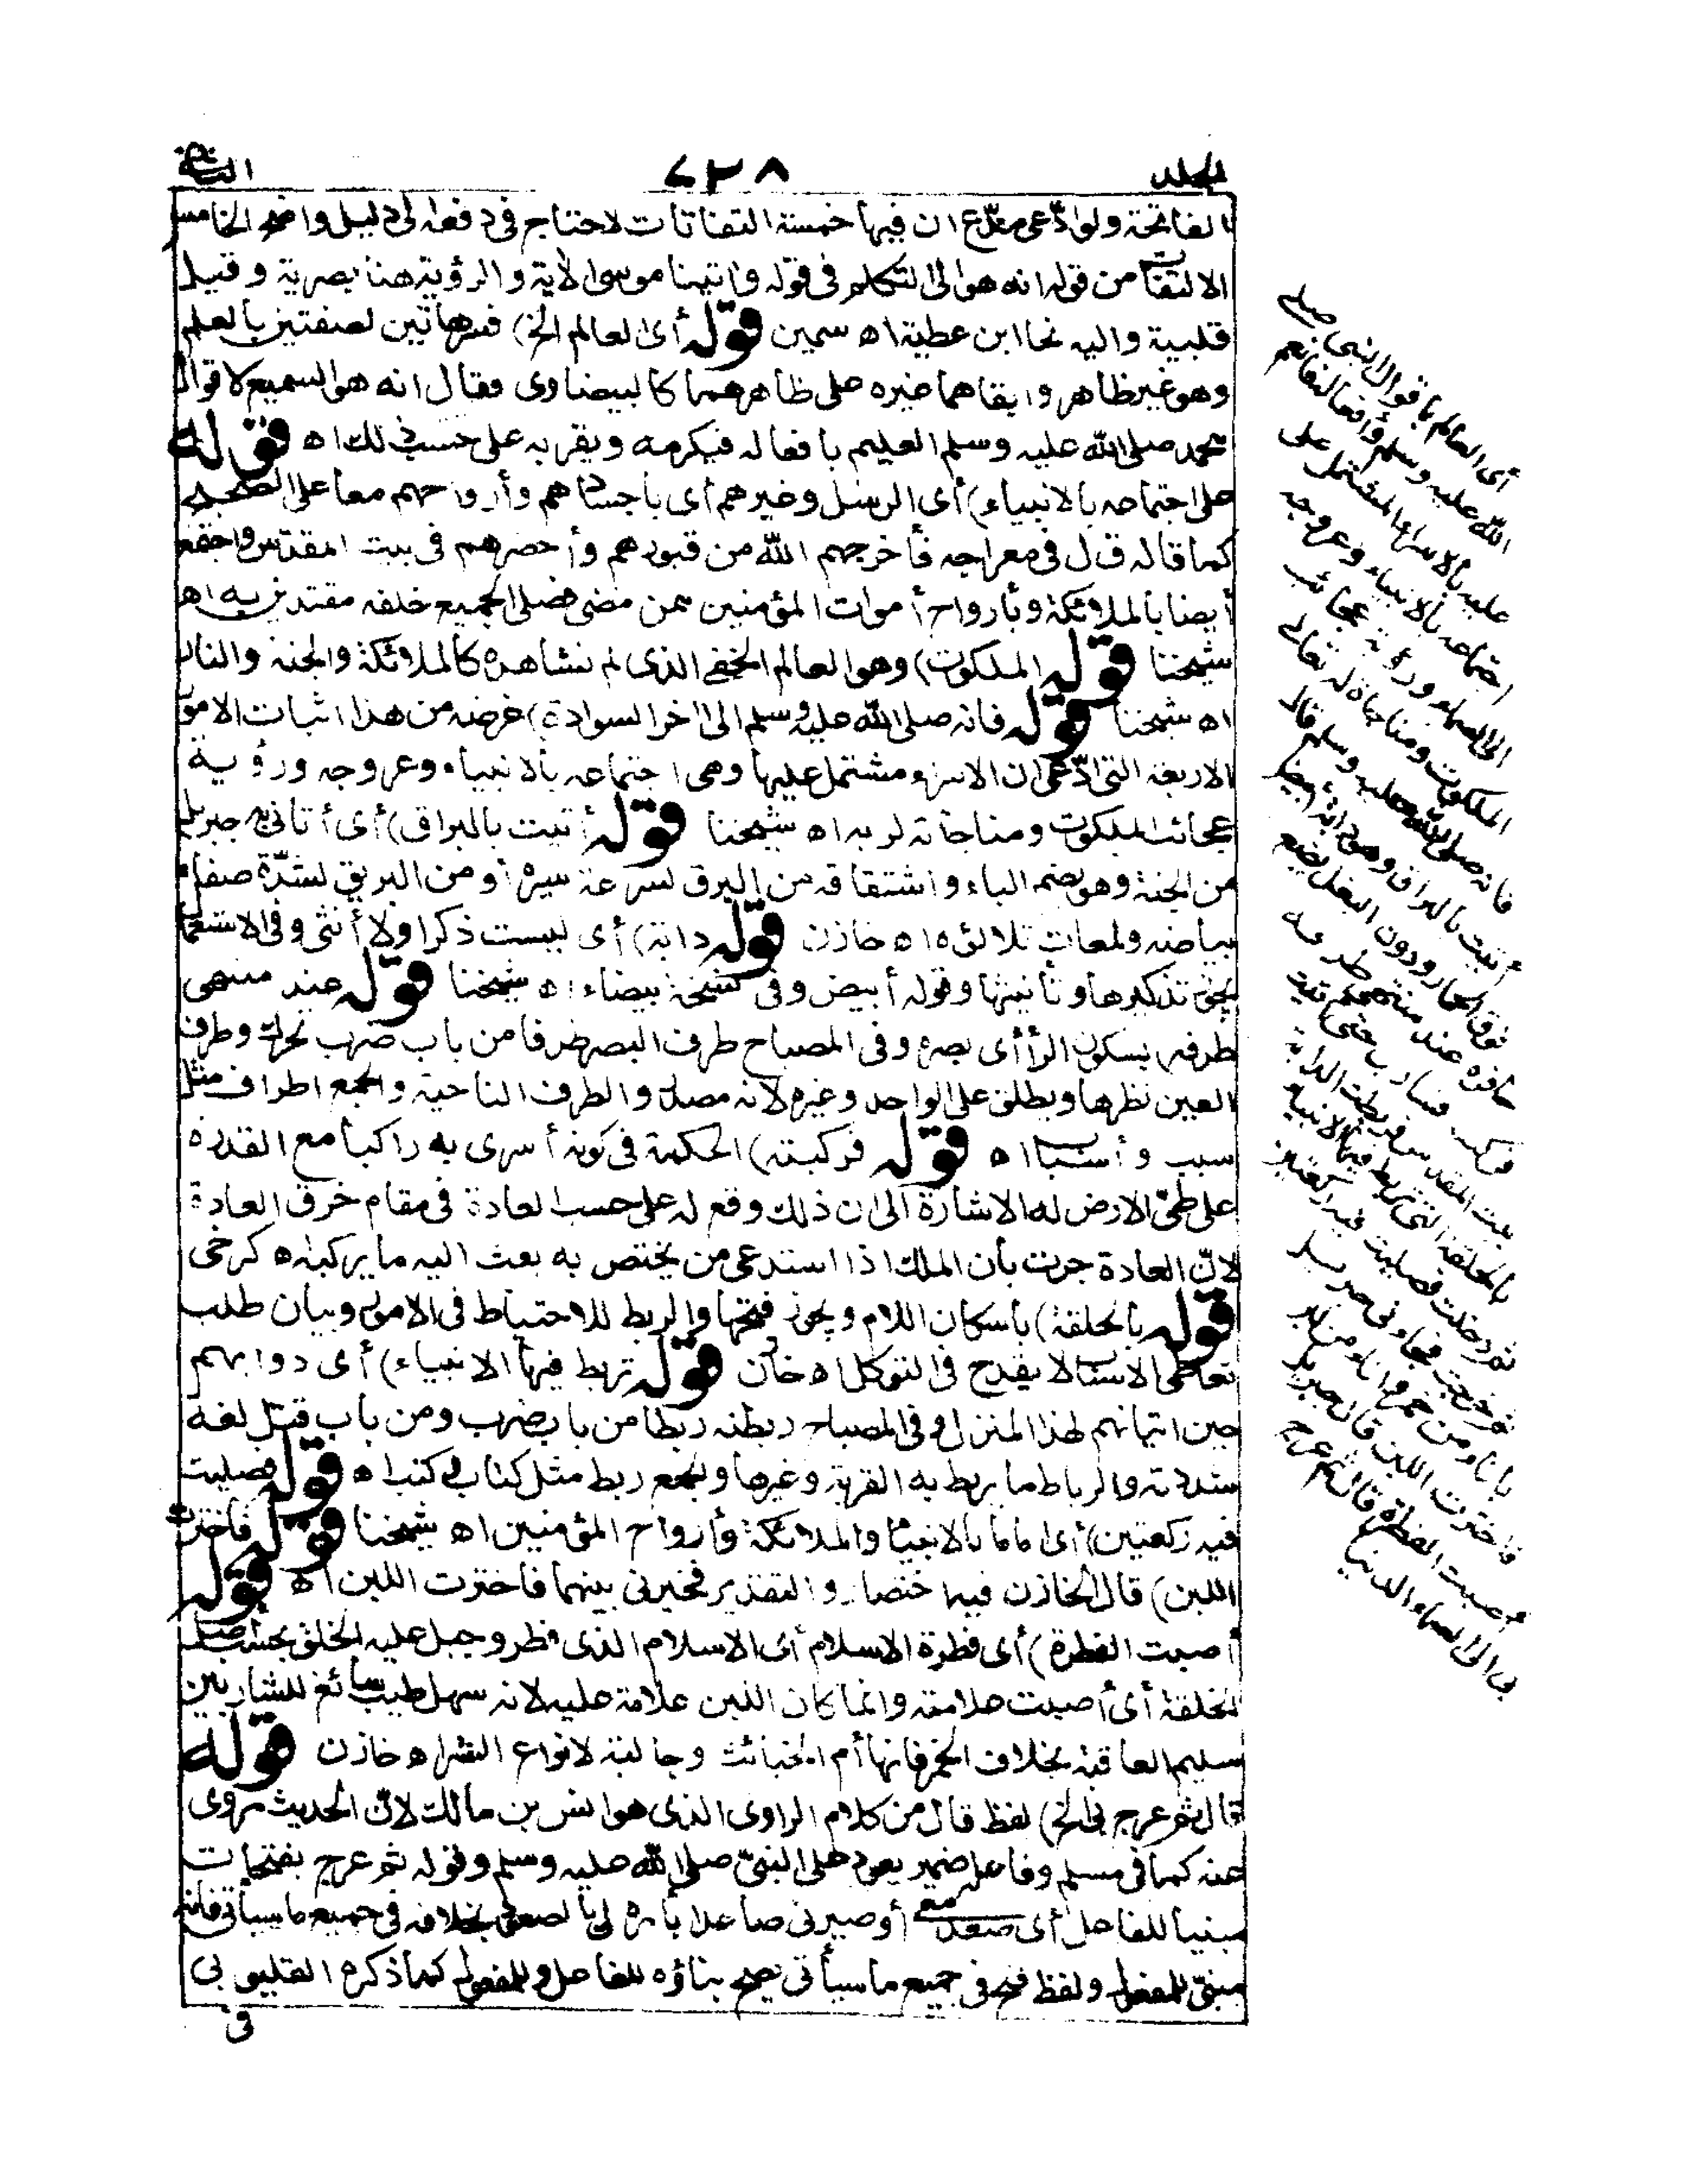 المجلد ٦٢٨ الثاني
الفاتحة ولو ادّعى مدّع ان فيها خمسة التفاتات لاحتاج في دفعه الى دليل واضح الخامس
الالتفات من قوله انه هو الى التكلم في قوله واتينا موسى الآية والرؤية هنا بصرية وقيل
قلبية واليه نحا ابن عطية اه سمين قوله أي العالم الخ) فسرهاتين الصفتين بالعلم
وهو غير ظاهر وابقاهما غيره على ظاهرهما كالبيضاوى فقال انه هو السميع لاقوال
محمد صلى الله عليه وسلم العليم بافعاله فيكرمه ويقربه على حسب ذلك اه قوله
على اجتماعه بالانبياء) أى الرسل وغيرهم أى باجسادهم وأرواحهم معا على الصحيح
كما قاله ق ل في معراجه فأخرجهم الله من قبورهم وأحضرهم في بيت المقدس واجتمع
أيضا بالملائكة وبأرواح أموات المؤمنين ممن مضى فصلى الجميع خلفه مقتدين به اه
شيخنا قوله الملكوت) وهو العالم الخفى الذى لم نشاهده كالملائكة والجنة والنار
اه شيخنا قوله فانه صلى الله عليه وسلم الى اخر السوادة) غرضه من هذا اثبات الامور
الاربعة التى ادّعى ان الاسراء مشتمل عليها وهى اجتماعه بالانبياء وعروجه ورؤية
عجائب الملكوت ومناجاته لربه اه شيخنا قوله أتيت بالبراق) أى أتاني به جبريل
من الجنة وهو بضم الباء واشتقاقه من البرق لسرعة سيره أو من البريق لشدّة صفاء
بياضه ولمعانه تلالئه اه خازن قوله دابة) أى ليست ذكرا ولا أنثى وفى الاستعمال
يجوز تذكيرها وتأنيثها وقوله أبيض وفى نسخة بيضاء اه شيخنا قوله عند منتهى
طرفه بسكون الراء أى بصره وفى المصباح طرف البصر طرفا من باب ضرب تحرك وطرف
العين نظرها ويطلق على الواحد وغيره لانه مصدر والطرف الناحية والجمع اطراف مثل
سبب وأسباب اه قوله فركبته) الحكمة فى كونه أسرى به راكبا مع القدرة
على طىّ الارض له الاشارة الى ان ذلك وقع له على حسب العادة فى مقام خرق العادة
لانّ العادة جرت بأن الملك اذا استدعى من يختص به بعث اليه ما يركبه اه كرخى
قوله بالحلقة) باسكان اللام ويجوز فتحها والربط للاحتياط فى الامور وبيان طلب
تعاطى الاسباب لا يقدح فى التوكل اه خازن قوله تربط فيها الانبياء) أى دوابهم
حين اتيانهم لهذا المنزل وفى المصباح ربطته ربطا من باب ضرب ومن باب قتل لغة
شددته والرباط ما يربط به القربة وغيرها والجمع ربط مثل كتاب وكتب اه قوله فصليت
فيه ركعتين) أى اماما بالانبياء والملائكة وأرواح المؤمنين اه شيخنا قوله فاخترت
اللبن) قال الخازن فيه اختصار والتقدير فخيرنى بينهما فاخترت اللبن اه قوله
أصبت الفطرة) أى فطرة الاسلام أى الاسلام الذى فطر وجبل عليه الخلق بحسب أصل
الخلقة أى أصبت علامته وانما كان اللبن علامة عليه لانه سهل طيب سائغ للشاربين
سليم العاقبة بخلاف الخمر فانها أم الخبائث وجالبة لانواع الشر اه خازن قوله
قال ثم عرج بى الخ) لفظ قال من كلام الراوى الذى هو انس بن مالك لانّ الحديث مروى
عنه كما فى مسلم وفاعله ضمير يعود على النبىّ صلى الله عليه وسلم وقوله ثم عرج بفتحات
مبنيا للفاعل أى صعد معى أو صيرنى صاعدا بأمره لى بالصعود بخلافه فى جميع ما سيأتى فانه
مبنىّ للمفعول ولفظ فتح فى جميع ما سيأتى يصح بناؤه للفاعل وللمفعول كما ذكره القليوبى
فى
أى العالم باقوال النبى صلى
الله عليه وسلم وأفعاله فانعم
عليه بالاسراء المشتمل على
اجتماعه بالانبياء وعروجه
الى السماء ورؤية عجائب
الملكوت ومناجاة له تعالى
فانه صلى الله عليه وسلم قال
أتيت بالبراق وهو دابة أبيض
فوق الحمار ودون البغل يضع
حافره عند منتهى طرفه
فركبته فسار بى حتى أتيت
بيت المقدس فربطت الدابة
بالحلقة التى تربط فيها الانبياء
ثم دخلت فصليت فيه ركعتين
ثم خرجت فجاءنى جبريل
باناء من خمر واناء من لبن
فاخترت اللبن قال جبريل
أصبت الفطرة قال ثم عرج
بى الى السماء الدنيا